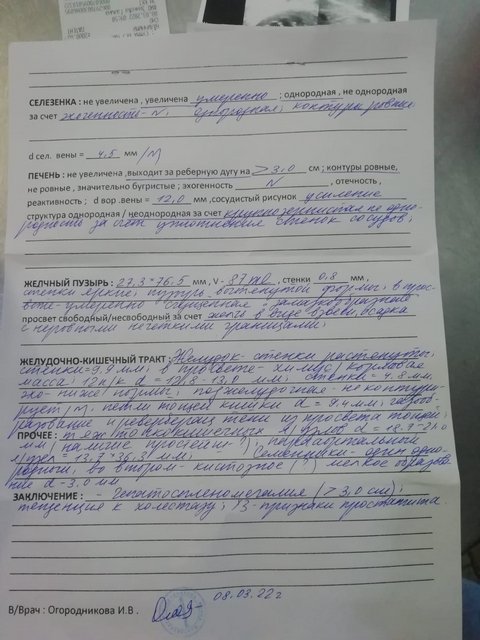 СЕЛЕЗЕНКА : не увеличена , увеличена умеренно ; однородная , не однородная
за счет эхогенность - N. однородная, контуры ровные
d сел. вены = 4,5 мм /N
ПЕЧЕНЬ : не увеличена ,выходит за реберную дугу на > 3,0 см ; контуры ровные,
не ровные , значительно бугристые ; эхогенность N , отечность ,
реактивность ; d вор .вены = 12,0 мм ,сосудистый рисунок усиление
структура однородная / неоднородная за счет крупнозернистая не одно-
родность за счет уплотнения стенок сосудов,
ЖЕЛЧНЫЙ ПУЗЫРЬ : 27,3*76,5 мм , v - 37 ml , стенки 0,8 мм ,
стенки яркие, пузырь вытянутой формы, в прос-
вете - умеренно сгущенная замазкообразная
просвет свободный/несвободный за счет желчь в виде взвеси, осадка
с неровными нечеткими границами,
ЖЕЛУДОЧНО-КИШЕЧНЫЙ ТРАКТ : Желудок - стенки растянуты,
стенки = 9,9 мм, в просвете - химус, кормовая
масса, 12 п/к d = 12,8 - 13,0 мм, стенка = 4,8 мм,
эхо - ниже нормы, поджелудочная - не контури-
рует /N, петли тощей кишки d = 9,4 мм, газооб-
разование и реверберац. тени из просвета петель,
ПРОЧЕЕ : т.ж. тонкокишечный л/узлов d =
мм,
л/узел = 13,7 * 36,3 мм Семенники - один одно-
родный, во втором - кистозное (?) мелкое образова-
ние d - 3,0 мм
ЗАКЛЮЧЕНИЕ : - Гепатоспленомегалия (> 3,0 см),
тенденция к холестазу, Э - признаки простатита.
08.03.22 г
В/Врач : Огородникова И.В .